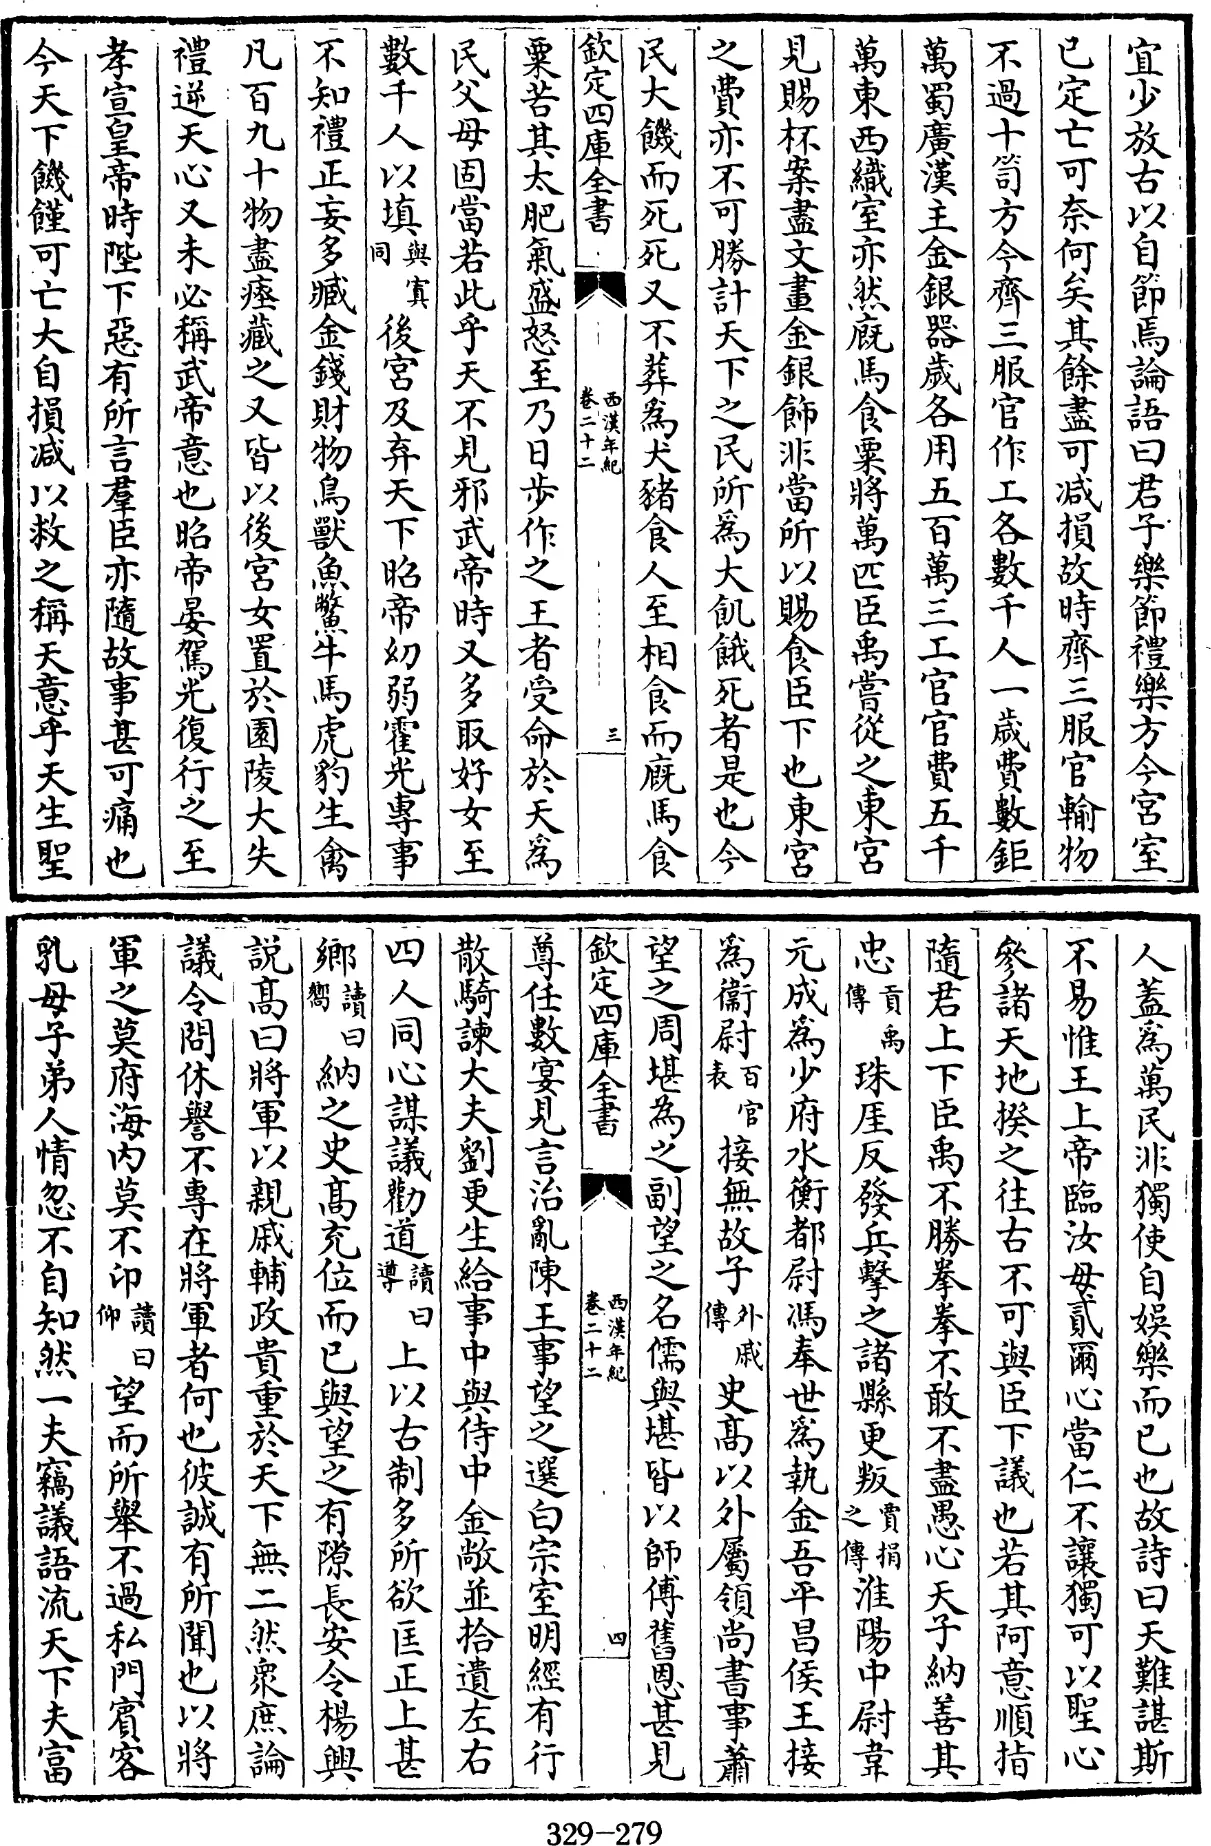 宜少放古以自節焉論語曰君子樂節禮樂方今宮室
已定亡可奈何矣其餘盡可減損故時齊三服官輸物
不過十笥方今齊三服官作工各數千人一歲費數鉅
萬蜀廣漢主金銀器歲各用五百萬三工官官費五千
萬東西織室亦然廐馬食粟將萬匹臣禹嘗從之東宮
見賜杯案盡文畫金銀飾非當所以賜食臣下也東宮
之費亦不可勝計天下之民所爲大飢餓死者是也今
民大饑而死死又不葬爲犬豬食人至相食而廐馬食
欽定四庫全書 西漢年紀 卷二十二 三
粟苦其太肥氣盛怒至乃日步作之王者受命於天爲
民父母固當若此乎天不見邪武帝時又多取好女至
數千人以填與寘同後宮及弃天下昭帝幼弱霍光專事
不知禮正妄多臧金錢財物鳥獸魚鱉牛馬虎豹生禽
凡百九十物盡瘞藏之又皆以後宮女置於園陵大失
禮逆天心又未必稱武帝意也昭帝晏駕光復行之至
孝宣皇帝時陛下惡有所言羣臣亦隨故事甚可痛也
今天下饑饉可亡大自損减以救之稱天意乎天生聖
人蓋爲萬民非獨使自娛樂而已也故詩曰天難諶斯
不易惟王上帝臨汝毋貳爾心當仁不讓獨可以聖心
參諸天地揆之往古不可與臣下議也若其阿意順指
隨君上下臣禹不勝拳拳不敢不盡愚心天子納善其
忠貢禹傳珠厓反發兵擊之諸縣更叛賈捐之傳淮陽中尉韋
元成爲少府水衡都尉馮奉世爲執金吾平昌侯王接
爲衞尉百官表接無故子外戚傳史髙以外屬領尚書事蕭
望之周堪為之副望之名儒與堪皆以師傅舊恩甚見
欽定四庫全書 西漢年紀 卷二十二 四
尊任數宴見言治亂陳王事望之選白宗室明經有行
散騎諫大夫劉更生給事中與侍中金敞並拾遺左右
四人同心謀議勸道讀曰導上以古制多所欲匡正上甚
鄉讀曰嚮納之史髙充位而已與望之有隙長安令楊興
説髙曰將軍以親戚輔政貴重於天下無二然衆庶論
議令問休譽不專在將軍者何也彼誠有所聞也以將
軍之莫府海内莫不卬讀曰仰望而所舉不過私門賓客
乳母子弟人情忽不自知然一夫竊議語流天下夫富
329-279